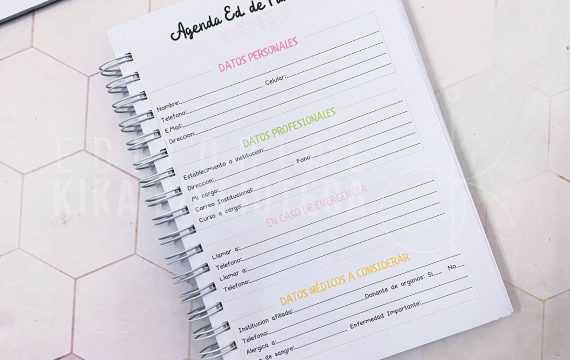 Agenda Ed. de
DATOS PERSONALES
Nombre:
Telefono: Celular:
E.Mail:
Direccion:
DATOS PROFESIONALES
Establecimiento o institucion:
Direccion: Fono:
Mi cargo:
Correo Institucional:
Curso a cargo:
EN CASO DE EMERGENCIA
Llamar a:
Telefono:
Llamar a:
Telefono:
DATOS MÉDICOS A CONSIDERAR
Institucion afiliada:
Telefono: Donante de organos: Si.... No..
Alergica a:
de sangre: Enfermedad Importante: